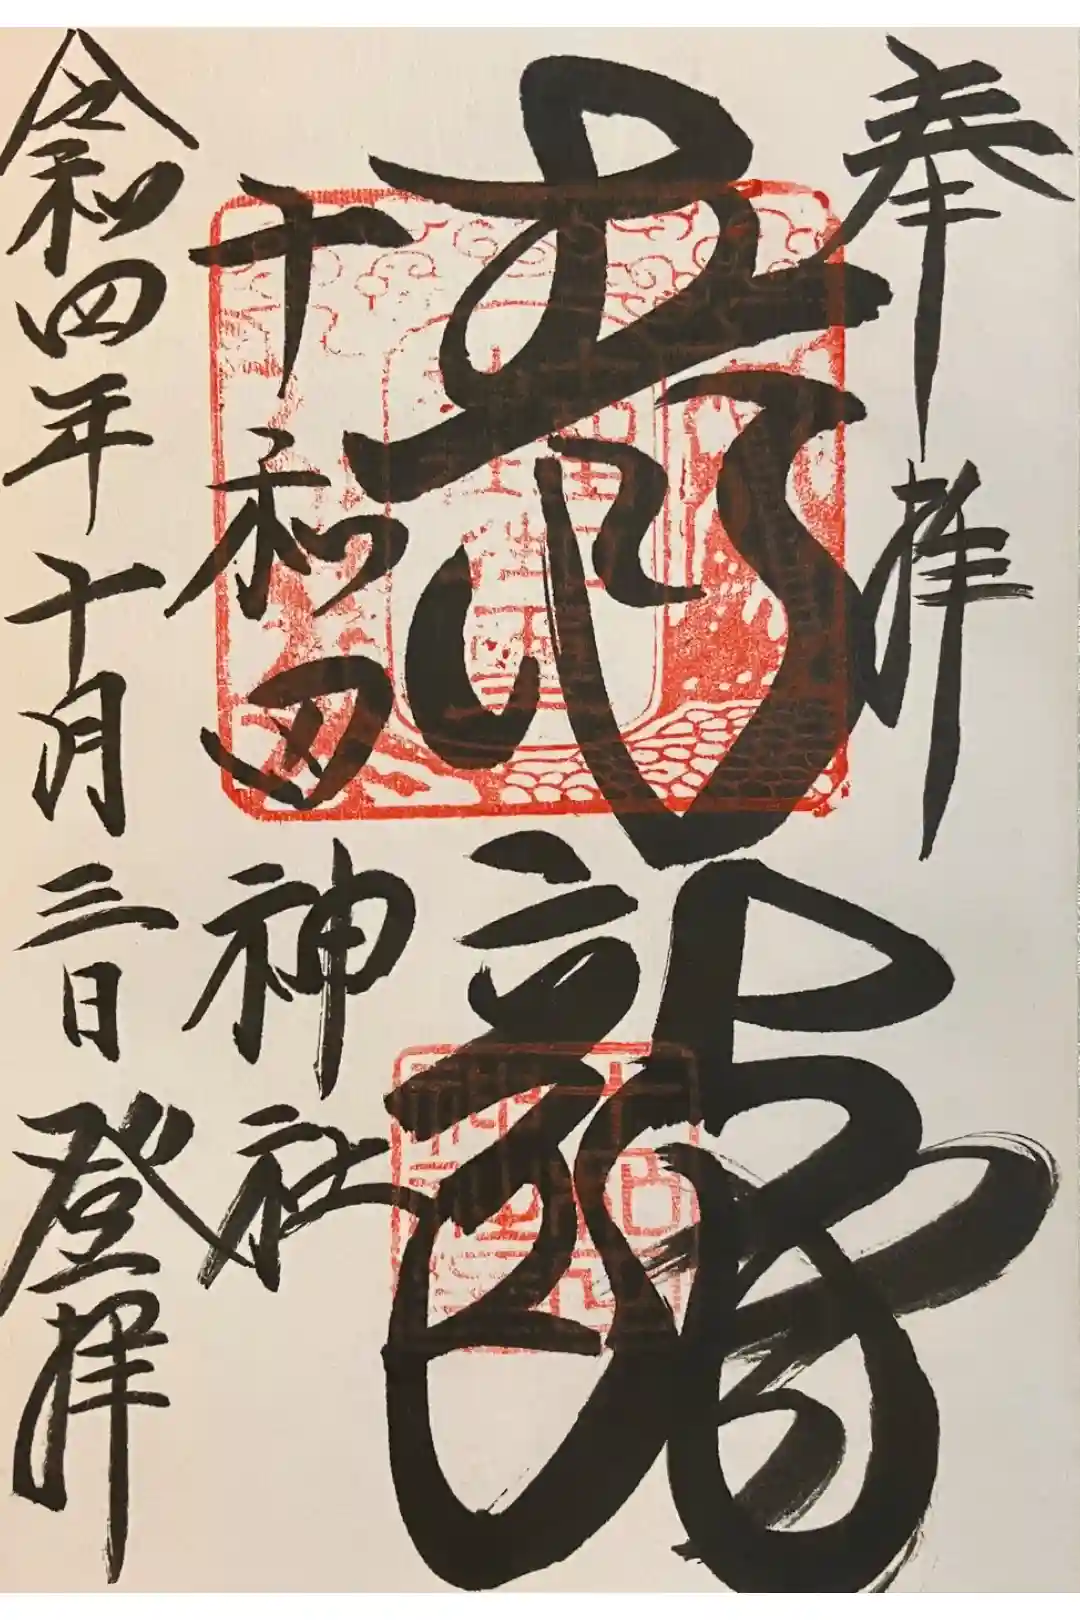 奉拝
青龍
十和田神社
令和四年十月三日登拝